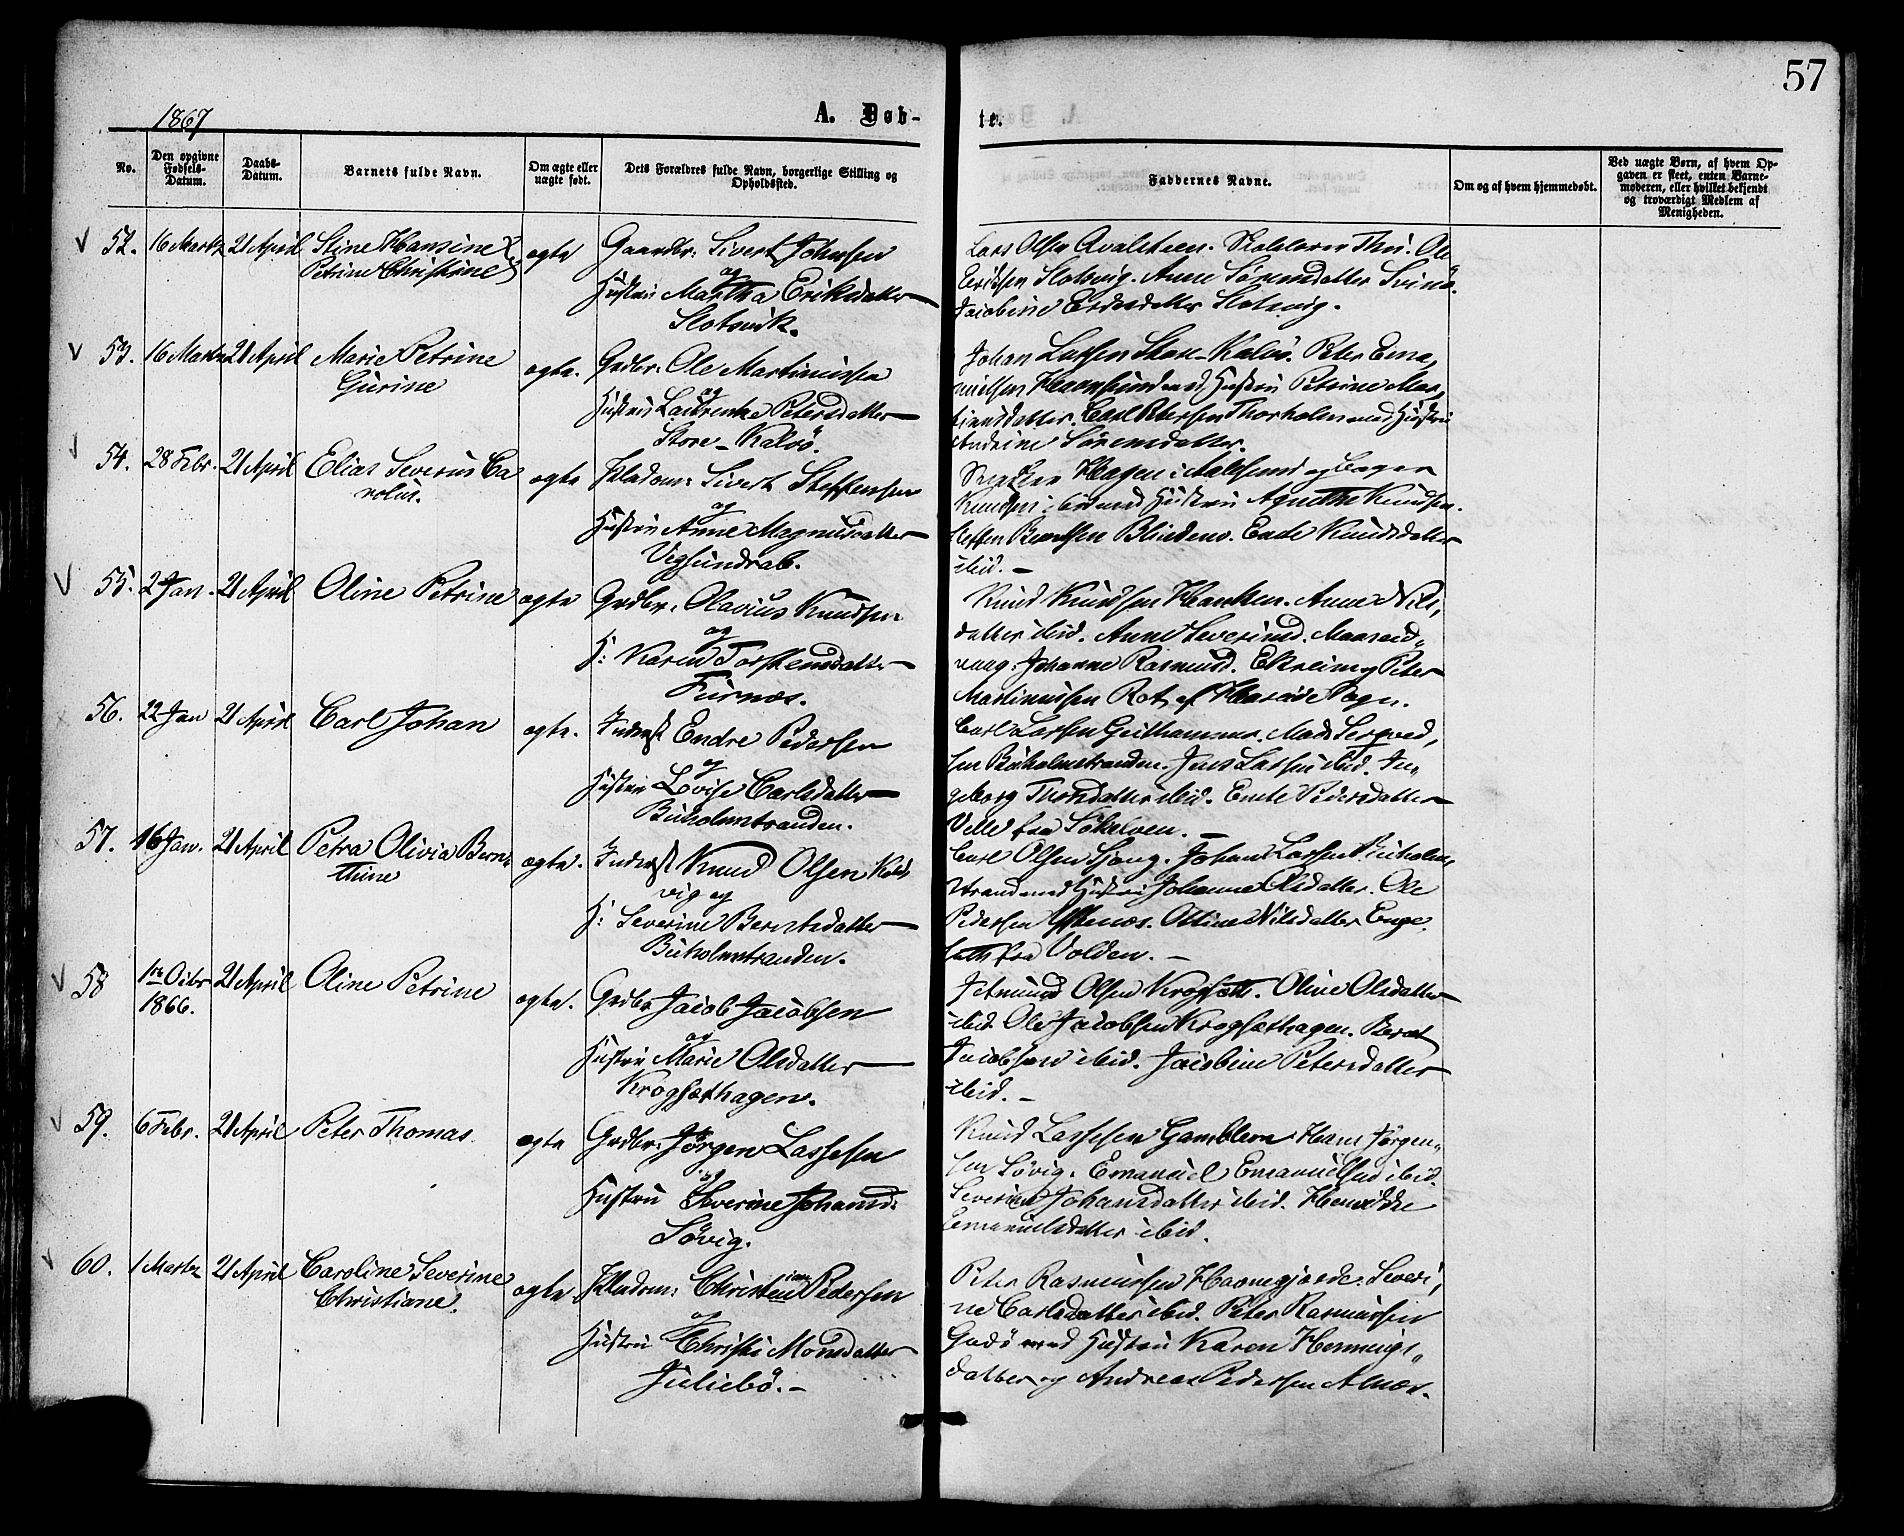 57
1867
A. Døb-
te.
No.
Den opgivne Fødsels-Datum.
Daabs-Datum.
Barnets fulde Navn.
Om ægte eller uægte født.
Dets Forældres fulde Navn, borgerlige Stilling og Opholdssted.
Faddernes Navne.
Om og af hvem hjemmedøbt.
Ved uægte Børn, af hvem Opgaven er skeet, enten Barnemoderen, eller hvilket bekjendt og troværdigt Medlem af Menigheden.
52. 16 Marts 21 April Stine Hansine
Petrine Christine
ægte
Gaardbr: Sivert Johnsen
og
Hustru Martha Eriksdatter
Slotsvik.
Lars Olsen Ole
Eriksen Slotsvig. Anne Sørensdatter
Jacobine Slotsvig.
53. 16 Marts 21 April Marie Petrine
Gurine
ægte.
Grdbr: Ole Martinussen
og
Hustru Laurentze Petersdatter
Store-Kalvø.
Johan Larsen Store-Kalvø. Peter Ema,
nuelsen med Hustru Petrine Mar,
tinusdatter. Carl Petersen med Hustru
Sørensdatter.
54. 28 Febr. 21 April Elias Severin Ca
rolus.
ægte
Sivert Steffensen
og
Hustru Anne Magnusdatter
Vegsundrab.
Hagen i Aalesund og
Knudsen ibid med Hustru Agnethe Knudsen.
Steffen Berntsen Blindem. Knudsdatter
ibid.
55. 2 Jan. 21 April Oline Petrine
ægte
Grdbr: Olavius Knudsen
og
H: Karen Torstensdatter
Furnæs.
Knud Knudsen Hanken. Anne Nils,
datter ibid. Anne Severinsd.
Johanne Rasmusd. Ekrem og Peter
Martinussen
56. 22 Jan 21 April Carl Johan
ægte.
Inderst Endre Pedersen
og
Hustru Lovise Carlsdatter
Buholmstranden.
Carl Larsen Geithammer. Mads
sen Buholmstranden. Jens Larsen ibid. In,
geborg ibid. Pedersdatter
Velle fra Søkelven.
57. 16 Jan. 21 April Petra Olivia Bern,
thine
ægte.
Inderst Knud Olsen
vig og
H: Severine Berntsdatter
Buholmstranden.
Carl Olsen Johan Larsen Buholm,
strand med Hustru Johanne Olsdatter. Ole
Pedersen Ystenæs. Nilsdatter Enge
fra Volden.
58 1ste Octbr
1866.
21 April Oline Petrine
ægte.
Grdbr Jacob Jacobsen
og
Hustru Marie Olsdatter
Krogsæthagen.
Jetmund Olsen Krogsæth. Oline Olsdatter
ibid. Ole Jacobsen Krogsæthagen. Bernt
Jacobsen ibid. Jacobine Petersdatter
ibid.
59. 6 Febr. 21 April Peter Thomas
ægte
Grdbr: Jørgen Lassesen
og
Hustru Severine Johansd:
Søvig.
Knud Lassesen Gamblem. Hans Jørgen,
sen Søvig. Emanuel Emanuelsen ibid.
Severine Johansdatter ibid.
Emanuelsdatter ibid.
60. 1 Marts 21 April Caroline Severine
Christiane.
ægte
Christian Pedersen
og
Hustru Christi Monsdatter
Juliebø.
Peter Rasmussen Severi,
ne Carlsdatter ibid. Peter Rasmussen
Godø med Hustru Karen Hennings,
datter og Andreas Pedersen Alnæs.